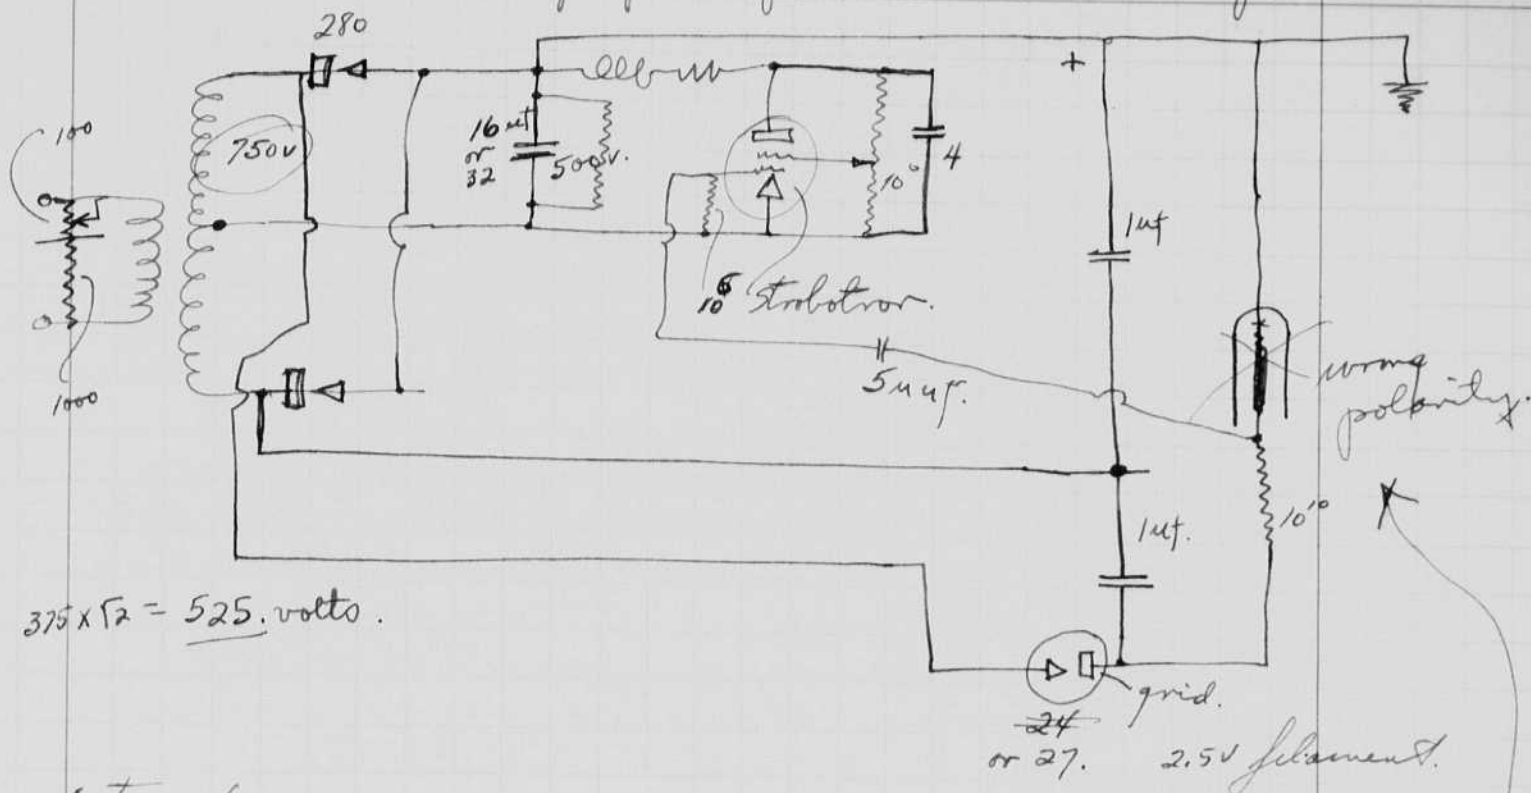 280
100
750v
16 uf
or
32
500v.
10⁶
4
+
1uf
10⁶ Strobotron.
5uuf.
wrong
polarity.
1000
10¹⁰
1uf.
375 x √2 = 525. volts.
grid.
24
or 27. 2.5v filament.